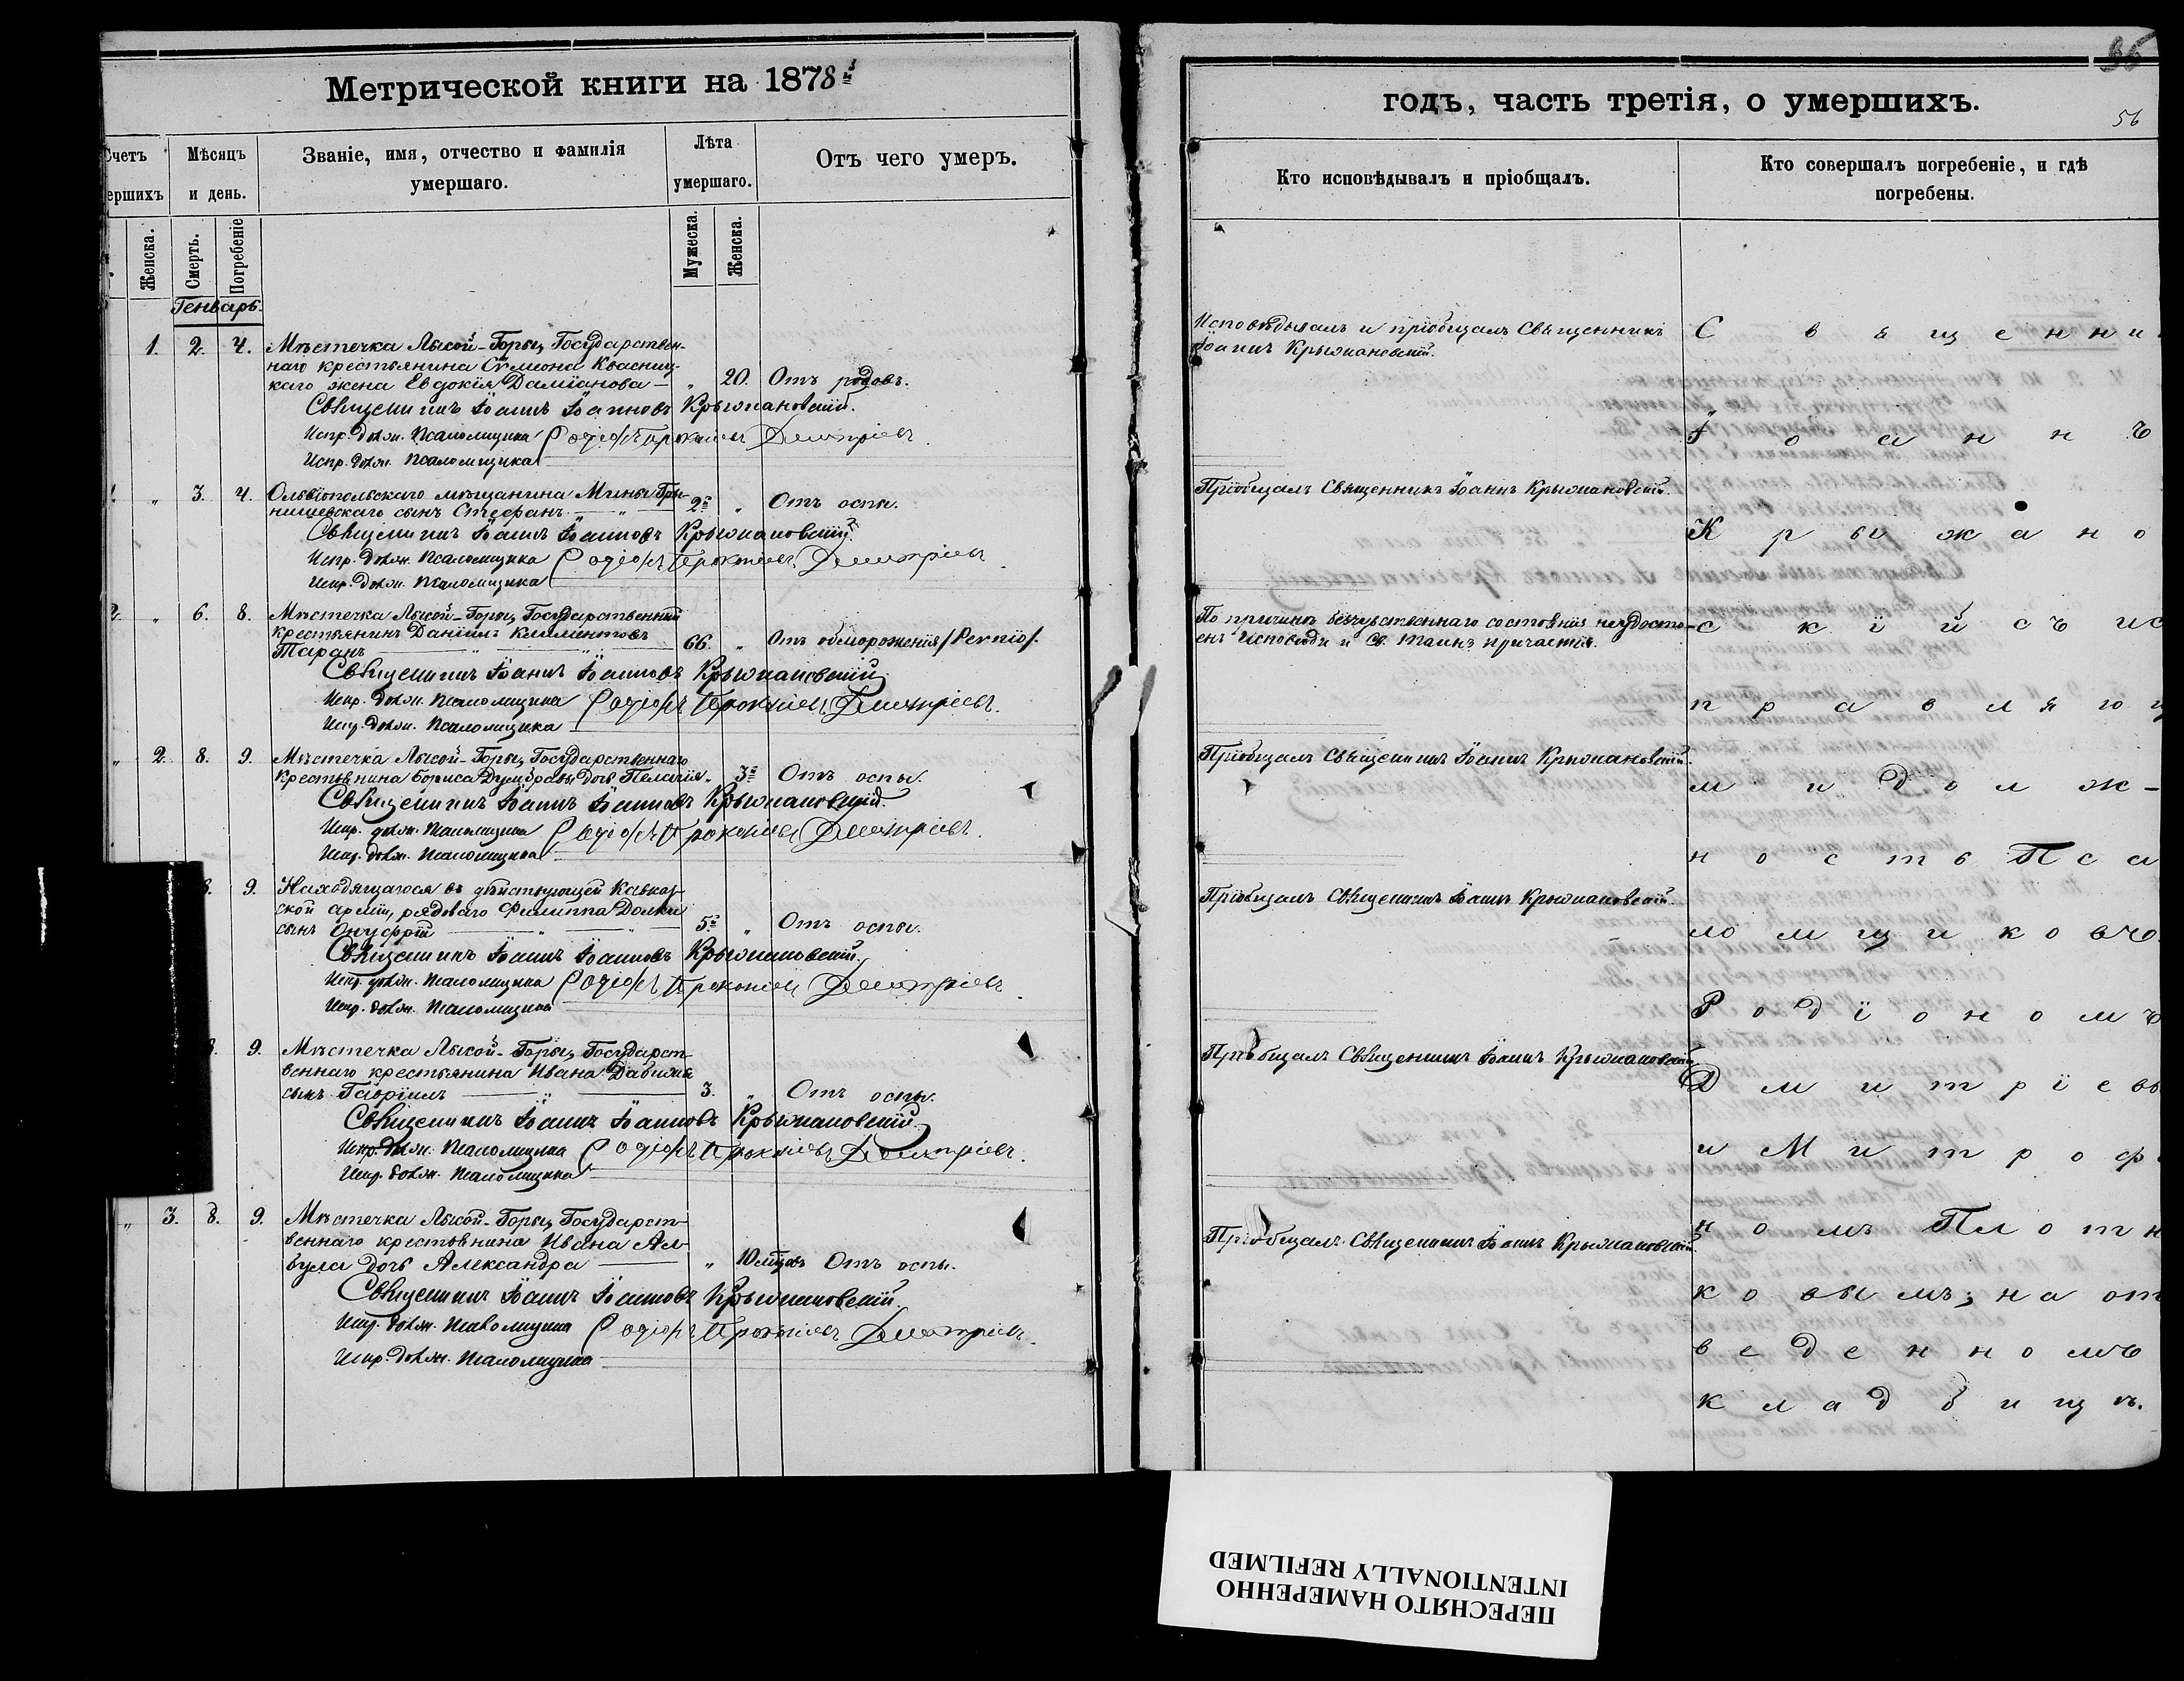 Метрической книги на 1878й
Счетъ
умершихъ
Мѣсяцъ
и день.
Званіе, имя, отчество и фамилія
умершаго.
Лѣта
умершаго.
Отъ чего умеръ.
Женска.
Смерть.
Погребеніе
Мужеска.
Женска.
Генварь.
1. 2. 4. Мѣстечка Лысой-Горы, Государствен-
наго крестьянина Сѵмеона Квасниц-
каго жена Евдокія Даміанова — „ 20. Отъ родовъ.
Священникъ Іоаннъ Іоанновъ Крыжановскій.
Испр. долж. Псаломщика Родіонъ Прокопіевъ Дмитріевъ.
Испр. долж. Псаломщика
1. „ 3. 4. Ольвіопольскаго мѣщанина Мины Гры-
нишевскаго сынъ Стефанъ — „ — 2х „ Отъ оспы.
Священникъ Іоаннъ Іоанновъ Крыжановскій
Испр. долж. Псаломщика Родіонъ Прокопіевъ Дмитріевъ.
Испр. долж. Псаломщика
2. „ 6. 8. Мѣстечка Лысой-Горы, Государственный
крестьянинъ Даніилъ Климентовъ
Таранъ — „ — „ — 66. „ Отъ обмороженія /Pernio/.
Священникъ Іоаннъ Іоанновъ Крыжановскій
Испр. долж. Псаломщика Родіонъ Прокопіевъ Дмитріевъ.
Испр. долж. Псаломщика
„ 2. 8. 9. Мѣстечка Лысой-Горы, Государственнаго
крестьянина Бориса Думбравы дочь Пелагія. „ 3х Отъ оспы.
Священникъ Іоаннъ Іоанновъ Крыжановскій.
Испр. долж. Псаломщика Родіонъ Прокопіевъ Дмитріевъ.
Испр. долж. Псаломщика
8. 9. Находящагося въ дѣйствующей Кавказ-
ской арміи, рядоваго Филиппа Долки
сынъ Онуфрій — „ — „ — 5х „ Отъ оспы.
Священникъ Іоаннъ Іоанновъ Крыжановскій.
Испр. долж. Псаломщика Родіонъ Прокопіевъ Дмитріевъ.
Испр. долж. Псаломщика
8. 9. Мѣстечка Лысой-Горы, Государст-
веннаго крестьянина Ивана
сынъ Гавріилъ — „ — 3. „ Отъ оспы.
Священникъ Іоаннъ Іоанновъ Крыжановскій.
Испр. долж. Псаломщика Родіонъ Прокопіевъ Дмитріевъ.
Испр. долж. Псаломщика
„ 3. 8. 9. Мѣстечка Лысой-Горы, Государст-
веннаго крестьянина Ивана Ал-
була дочь Александра — „ 10 мцевъ Отъ оспы.
Священникъ Іоаннъ Іоанновъ Крыжановскій.
Испр. долж. Псаломщика Родіонъ Прокопіевъ Дмитріевъ.
Испр. долж. Псаломщика
годъ, часть третія, о умершихъ.
56
Кто исповѣдывалъ и пріобщалъ.
Кто совершалъ погребеніе, и гдѣ
погребены.
Исповѣдывалъ и пріобщалъ Священникъ
Іоаннъ Крыжановскій.
Пріобщалъ Священникъ Іоаннъ Крыжановскій.
По причинѣ безчувственнаго состоянія неудосто-
енъ Исповѣди и Св. Таинъ причастія.
Пріобщалъ Священникъ Іоаннъ Крыжановскій.
Пріобщалъ Священникъ Іоаннъ Крыжановскій.
Пріобщалъ Священникъ Іоаннъ Крыжановскій
Пріобщалъ Священникъ Іоаннъ Крыжановскій.
Священни
Іоаннъ
Крыжано
скій съ ис
правляющ
ми долж-
ность Пса
ломщиковъ
Родіономъ
Дмитріевы
и Митроф
номъ Плотн
ковымъ; на от
веденномъ
кладбищѣ.
ПЕРЕСНЯТО НАМЕРЕННО
INTENTIONALLY REFILMED